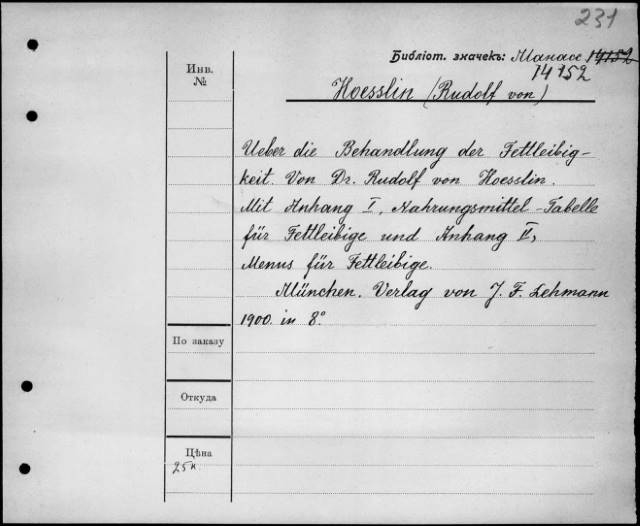 231
Библіот. значекъ: Манасс 14152
14152
Инв.
№
Hoesslin (Rudolf von)
Ueber die Behandlung der Fettleibig-
keit. Von Dr. Rudolf von Hoesslin.
Mit Anhang I, Nahrungsmittel-Tabelle
für Fettleibige und Anhang II,
Menus für Fettleibige.
München. Verlag von J. F. Lehmann
1900. in 8°.
По заказу
Откуда
Цѣна
25 к